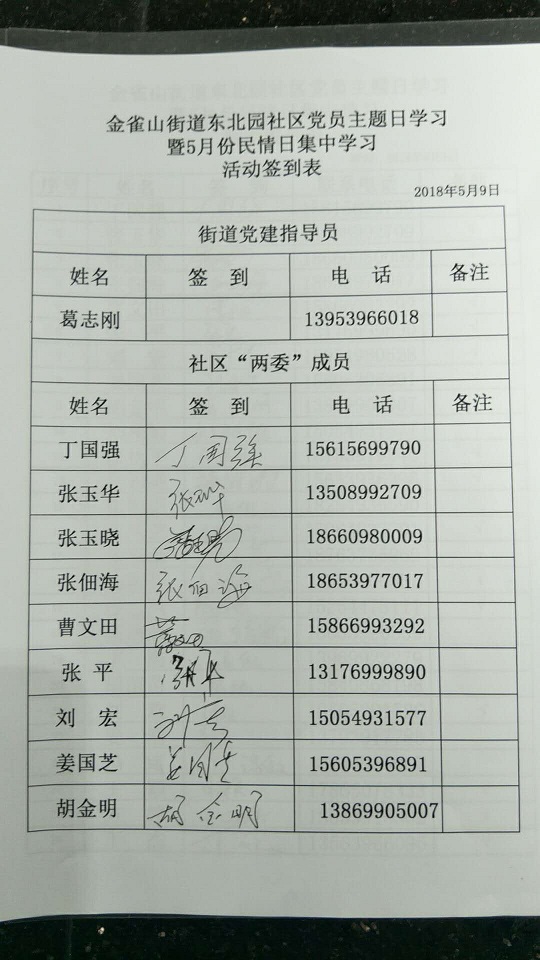 金雀山街道东北园社区党员主题日学习
暨5月份民情日集中学习
活动签到表
2018年5月9日
街道党建指导员
姓名 签 到 电 话 备注
葛志刚 13953966018
社区“两委”成员
姓名 签 到 电 话 备注
丁国强 丁国强 15615699790
张玉华 张玉华 13508992709
张玉晓 18660980009
张佃海 张佃海 18653977017
曹文田 15866993292
张 平 张平 13176999890
刘 宏 刘宏 15054931577
姜国芝 姜国芝 15605396891
胡金明 胡金明 13869905007